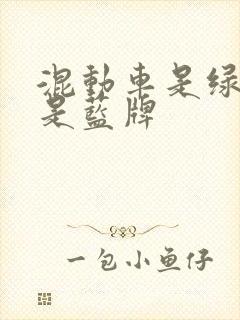 混動車是绿
是藍牌
一包小鱼仔